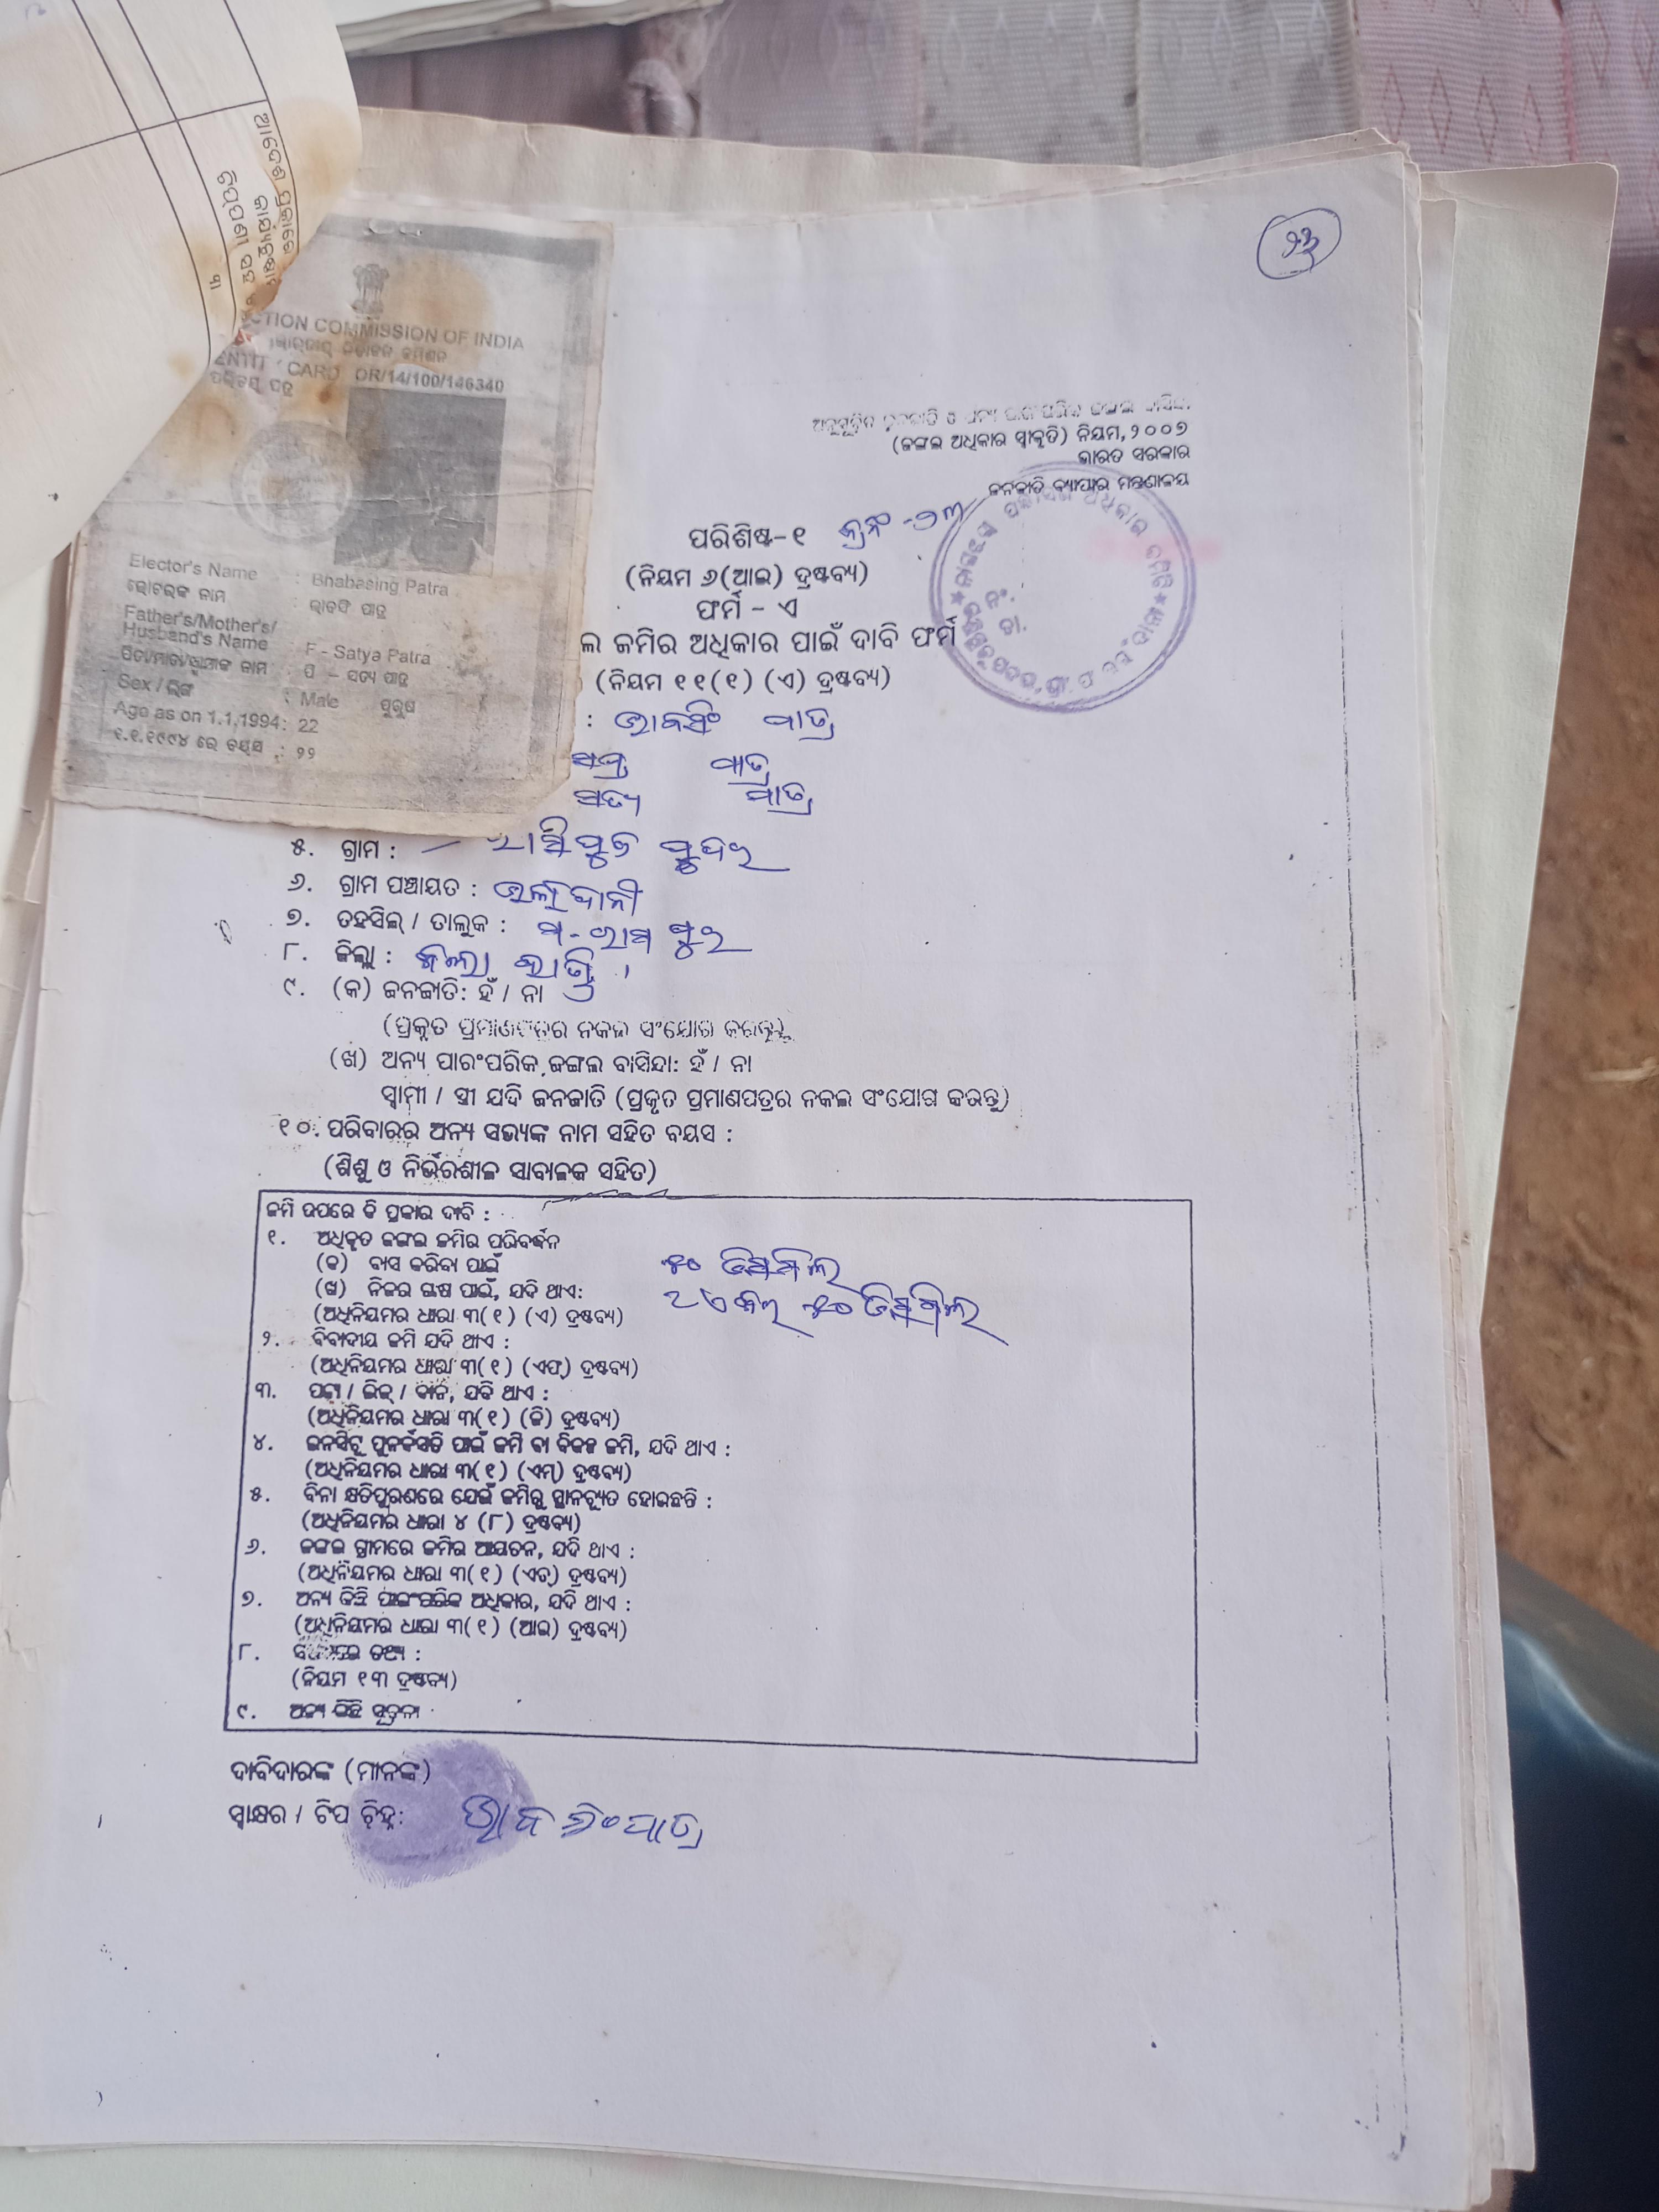 ୨୩
ଆଦେଶ
CTION COMMISSION OF INDIA
CARD OR/14/100/146340
ପରିଚୟ ପତ୍ର
Elector's Name : Bhabasing Patra
ଭୋଟରଙ୍କ ନାମ : ଭାବସିଂ ପାତ୍ର
Father's/Mother's/
Husband's Name : F - Satya Patra
ପିତା/ମାତା/ସ୍ବାମୀଙ୍କ ନାମ ପି - ସତ୍ୟ ପାତ୍ର
Sex / ଲିଙ୍ଗ : Male ପୁରୁଷ
Age as on 1.1.1994: 22
୧.୧.୧୯୯୪ ରେ ବୟସ : ୨୨
ଅନୁସୂଚିତ ଜନଜାତି ଓ ଅନ୍ୟ
(ଜଙ୍ଗଲ ଅଧିକାର ସ୍ୱୀକୃତି) ନିୟମ, ୨୦୦୭
ଭାରତ ସରକାର
ଜନଜାତି ବ୍ୟାପାର ମନ୍ତ୍ରଣାଳୟ
ପରିଶିଷ୍ଟ-୧ କ୍ରନଂ -୨୩
(ନିୟମ ୬(ଆଇ) ଦ୍ରଷ୍ଟବ୍ୟ)
ଫର୍ମ - ଏ
ଲ ଜମିର ଅଧିକାର ପାଇଁ ଦାବି ଫର୍ମ
(ନିୟମ ୧୧(୧) (ଏ) ଦ୍ରଷ୍ଟବ୍ୟ)
: ଭାବସିଂ ପାତ୍ର
ପାତ୍ର
ସତ୍ୟ ପାତ୍ର
୫. ଗ୍ରାମ :
୬. ଗ୍ରାମ ପଞ୍ଚାୟତ :
୭. ତହସିଲ୍ / ତାଲୁକ : ମ. ରାମପୁର
୮. ଜିଲ୍ଲା :
୯. (କ) ଜନଜାତି: ହଁ / ନା
(ପ୍ରକୃତ ପ୍ରମାଣପତ୍ରର ନକଲ ସଂଯୋଗ କରନ୍ତୁ)
(ଖ) ଅନ୍ୟ ପାରଂପରିକ ଜଙ୍ଗଲ ବାସିନ୍ଦା: ହଁ / ନା
ସ୍ୱାମୀ / ସ୍ତ୍ରୀ ଯଦି ଜନଜାତି (ପ୍ରକୃତ ପ୍ରମାଣପତ୍ରର ନକଲ ସଂଯୋଗ କରନ୍ତୁ)
୧୦. ପରିବାରର ଅନ୍ୟ ସଭ୍ୟଙ୍କ ନାମ ସହିତ ବୟସ :
(ଶିଶୁ ଓ ନିର୍ଭରଶୀଳ ସାବାଳକ ସହିତ)
ଜମି ଉପରେ କି ପ୍ରକାର ଦାବି :
୧. ଅଧିକୃତ ଜଙ୍ଗଲ ଜମିର ପରିବର୍ଦ୍ଧନ
(କ) ବାସ କରିବା ପାଇଁ ୫୦ ଡିସମିଲ
(ଖ) ନିଜର ଚାଷ ପାଇଁ, ଯଦି ଥାଏ: ୨ ଏକର ୫୦ ଡିସମିଲ
(ଅଧିନିୟମର ଧାରା ୩(୧) (ଏ) ଦ୍ରଷ୍ଟବ୍ୟ)
୨. ବିବାଦୀୟ ଜମି ଯଦି ଥାଏ :
(ଅଧିନିୟମର ଧାରା ୩(୧) (ଏଫ୍) ଦ୍ରଷ୍ଟବ୍ୟ)
୩. ପଟ୍ଟା / ଲିଜ୍ / ଦାନ, ଯଦି ଥାଏ :
(ଅଧିନିୟମର ଧାରା ୩(୧) (ଜି) ଦ୍ରଷ୍ଟବ୍ୟ)
୪. ଇନସିଟୁ ପୁନର୍ବସତି ପାଇଁ ଜମି ବା ବିକଳ୍ପ ଜମି, ଯଦି ଥାଏ :
(ଅଧିନିୟମର ଧାରା ୩(୧) (ଏମ୍) ଦ୍ରଷ୍ଟବ୍ୟ)
୫. ବିନା କ୍ଷତିପୂରଣରେ ଯେଉଁ ଜମିରୁ ସ୍ଥାନଚ୍ୟୁତ ହୋଇଛନ୍ତି :
(ଅଧିନିୟମର ଧାରା ୪ (୮) ଦ୍ରଷ୍ଟବ୍ୟ)
୬. ଜଙ୍ଗଲ ଗ୍ରାମରେ ଜମିର ଆୟତନ, ଯଦି ଥାଏ :
(ଅଧିନିୟମର ଧାରା ୩(୧) (ଏଚ୍) ଦ୍ରଷ୍ଟବ୍ୟ)
୭. ଅନ୍ୟ କିଛି ପାରଂପରିକ ଅଧିକାର, ଯଦି ଥାଏ :
(ଅଧିନିୟମର ଧାରା ୩(୧) (ଆଇ) ଦ୍ରଷ୍ଟବ୍ୟ)
୮. ତଥ୍ୟ :
(ନିୟମ ୧୩ ଦ୍ରଷ୍ଟବ୍ୟ)
୯. ଅନ୍ୟ କିଛି ସୂଚନା
ଦାବିଦାରଙ୍କ (ମାନଙ୍କ)
ସ୍ୱାକ୍ଷର / ଟିପ ଚିହ୍ନ: ଭାବସିଂ ପାତ୍ର